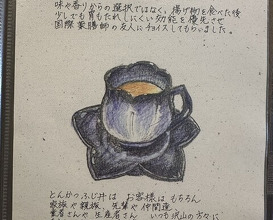 味や香りからの選択ではなく、揚げ物を食べた後
少しでも胃もたれしにくい効能を優先させ
国際薬膳師の友人にチョイスしてもらいました。
とんかつふじ井は お客様は もちろん
家族や親族、先輩や仲間達
業者さんや生産者さん いつも沢山の方々に